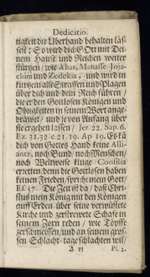 Dedicatio.
tigkeit die Uberhand behalten läs-
sest; So wird dich GOtt mit Dei-
nem Hauß und Reichen weiter
stürtzen/ wie Ahas, Manasse, Joja-
chim und Zedekia. und wird in
künfftig alle Straffen und Plagen
über dich und dein Reich führen/
die er den Gottlosen Königen und
Obrigkeiten in seinem Wort ange-
drauet/ und je von Anfang über
sie ergehen lassen/ Jer 22. Sap. 6.
Ez 21, 17 c 21. 19. Ap 19. Es
dich von Gottes Hand keine Alli-
antz, noch Bund/ noch Menschen/
noch Weltweise Consilia
erretten, denn die Gottlosen haben
keinen Frieden/ spricht mein Gott/
Es 57. Die Zeit ist da/ daß Chri-
stus mein König mit den Königen
auff Erden über seine verwüstete
Kirche und zerstreuete Schafe in
seinem Zorn reden/ wie Töpffe
zerschmeissen/ und an seinem gros-
sen Schlacht-tage schlachten wil/
Ps 2.